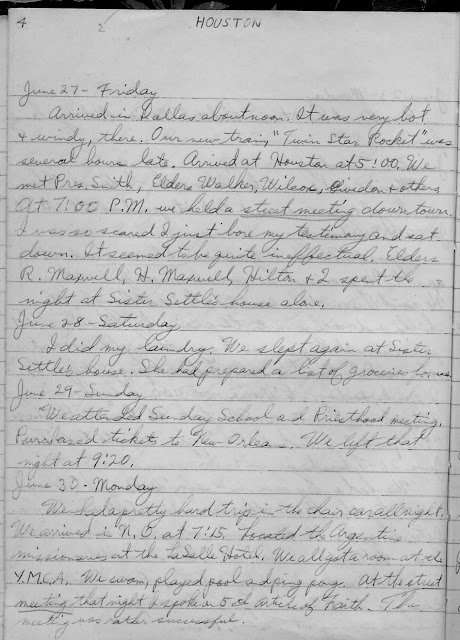 4 2 HOUSTON
June 27 - Friday
Arrived in Dallas about noon. It was very hot
& windy, there. Our new train, "Twin Star Rocket" was
several hours late. Arrived at Houston at 5:00. We
met Pres. Smith, Elders Walker, Wilcox, & others.
At 7:00 P.M. we held a street meeting down town.
I was so scared I just bore my testimony and sat
down. It seemed to be quite ineffectual. Elders
R. Maxwell, H. Maxwell, Hilton & I spent the
night at Sister Settle's house alone.
June 28 - Saturday
I did my laundry. We slept again at Sister
Settle's house. She had prepared a list of groceries for us.
June 29 - Sunday
We attended Sunday School and Priesthood meeting.
Purchased tickets to New Orleans. We left that
night at 9:20.
June 30 - Monday
We had a pretty hard trip in the chair car all night.
We arrived in N.O. at 7:15. Located the Argentine
missionaries at the LaSalle Hotel. We all got a room at the
Y.M.C.A. We swam, played pool and ping pong. At the street
meeting that night I spoke on 5th Article of Faith. The
meeting was rather successful.